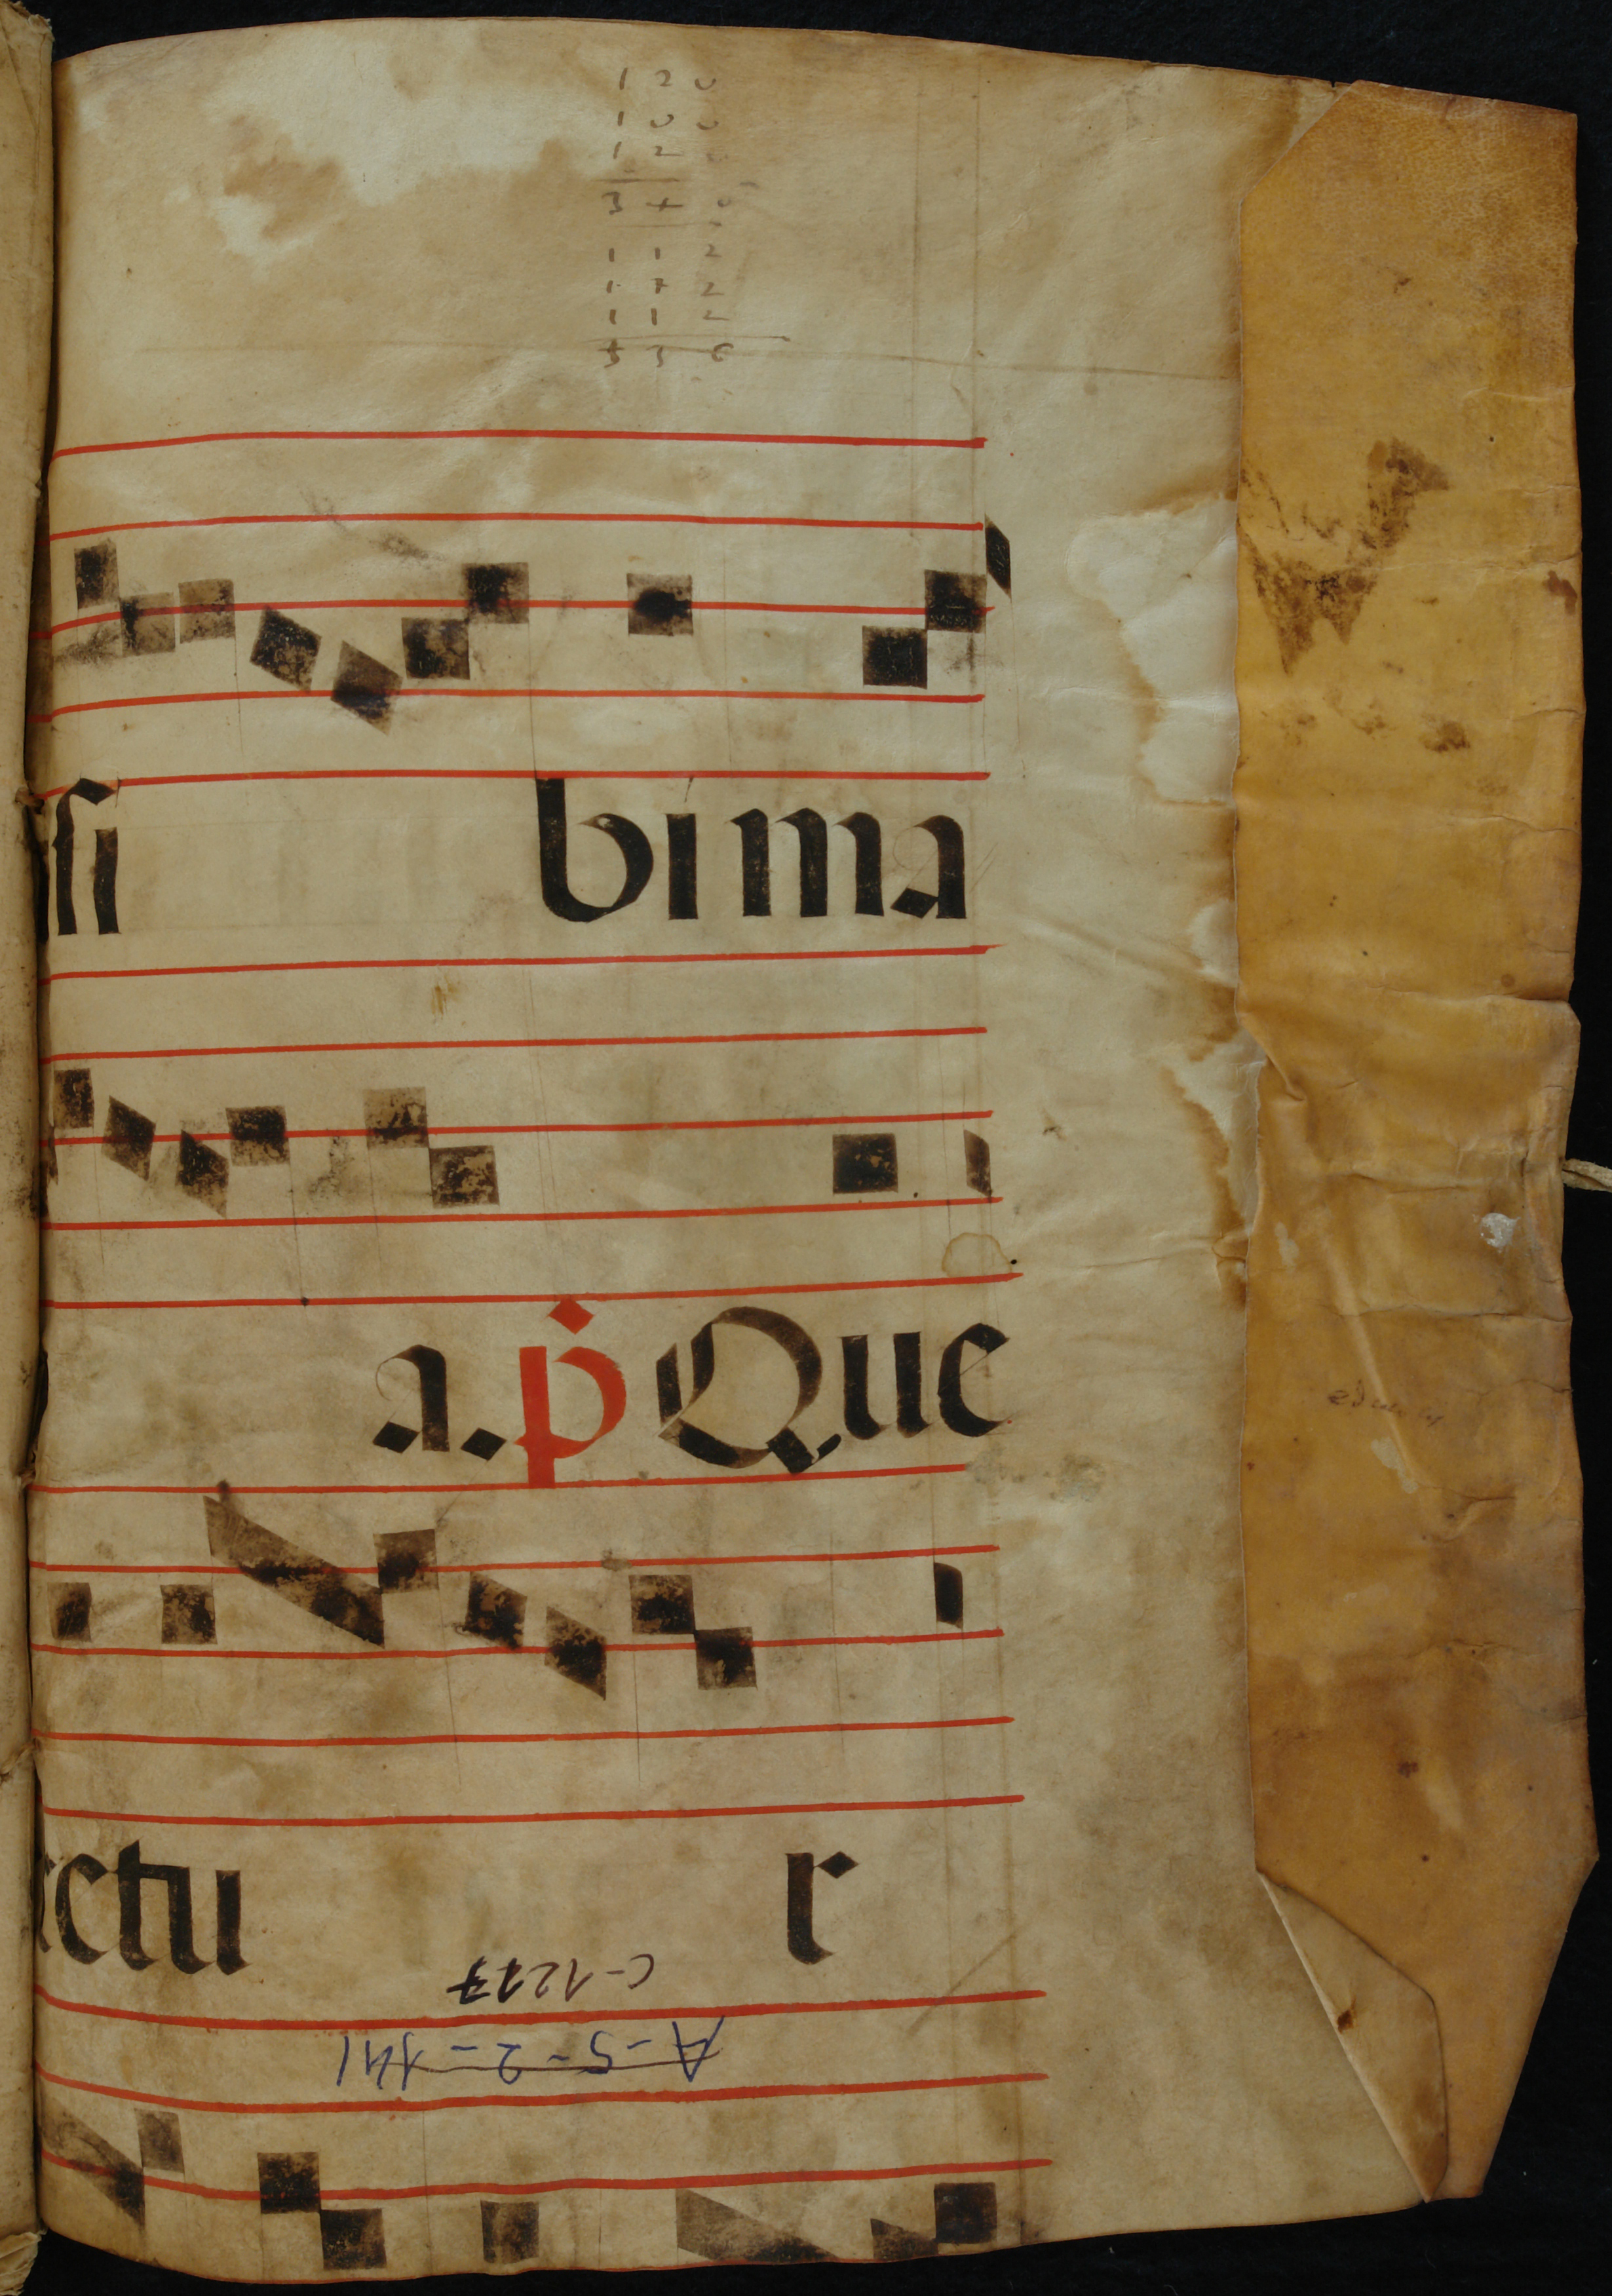 120
100
12
340
112
112
112
336
si bima
a. ṗ Que
ctu r
C-1217
A-5-2-141